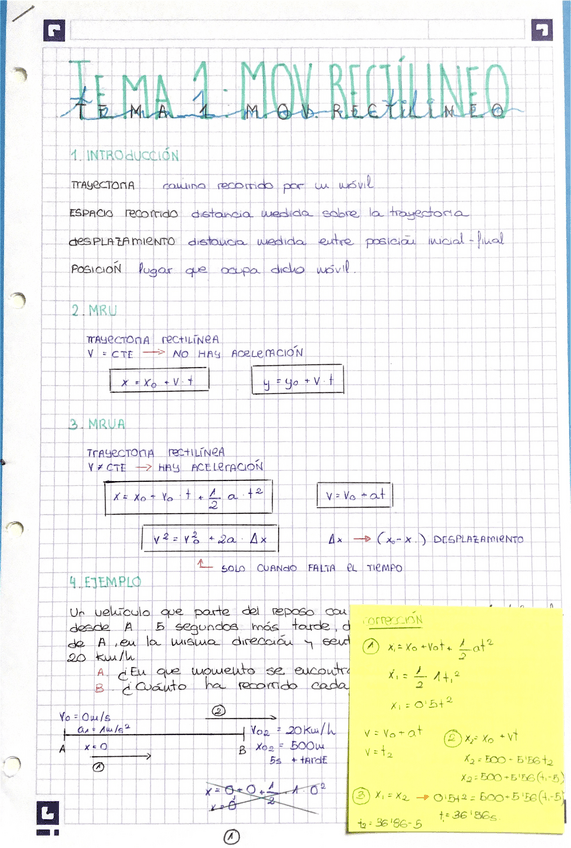 TEMA 1. MOV RECTÍLINEO
TEMA 1 MOV. RECTILINEO
1. INTRODUCCIÓN
TRAYECTORIA camino recorrido por un móvil
ESPACIO RECORRIDO distancia medida sobre la trayectoria
DESPLAZAMIENTO distancia medida entre posición inicial-final
POSICIÓN lugar que ocupa dicho móvil.
2. MRU
TRAYECTORIA RECTILÍNEA
V = CTE → NO HAY ACELERACIÓN
x = x₀ + v · t
y = y₀ + v · t
3. MRUA
TRAYECTORIA RECTILÍNEA
V ≠ CTE → HAY ACELERACIÓN
x = x₀ + v₀ · t + 1/2 a · t²
v = v₀ + at
v² = v₀² + 2a · Δx
Δx → (x₀ - x.) DESPLAZAMIENTO
SOLO CUANDO FALTA EL TIEMPO
4. EJEMPLO
Un vehículo que parte del reposo con
desde A 5 segundos más tarde, d
de A, en la misma dirección y sent
20 km/h
A. ¿En que momento se encontra
B ¿Cuánto ha recorrido cada
V₀ = 0m/s
a₁ = 1m/s²
A x=0
①
②
B
V₀₂ = 20km/h
x₀₂ = 500m
5s + tarde
x = 0 + 0 + 1/2 · 1 · 0²
x = 0
①
CORRECCIÓN
① x₁ = x₀ + v₀t + 1/2 at²
x₁ = 1/2 1t₁²
x₁ = 0'5t²
v = v₀ + at
v = t₂
② x₂ = x₀ + vt
x₂ = 500 - 5'56t₂
x₂ = 500 + 5'56(t-5)
③ x₁ = x₂ → 0'5t² = 500 + 5'56(t-5)
t = 36'86s
t₂ = 36'86-5